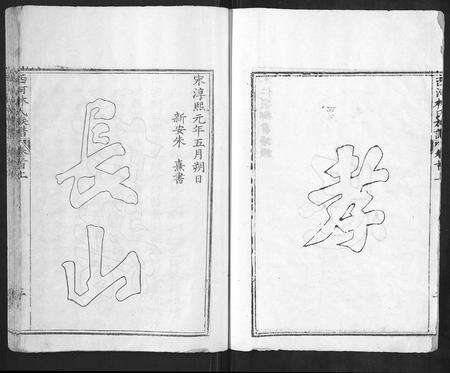 孝
宋淳熙元年五月朔日
新安朱 熹書
長山
西河林氏族譜